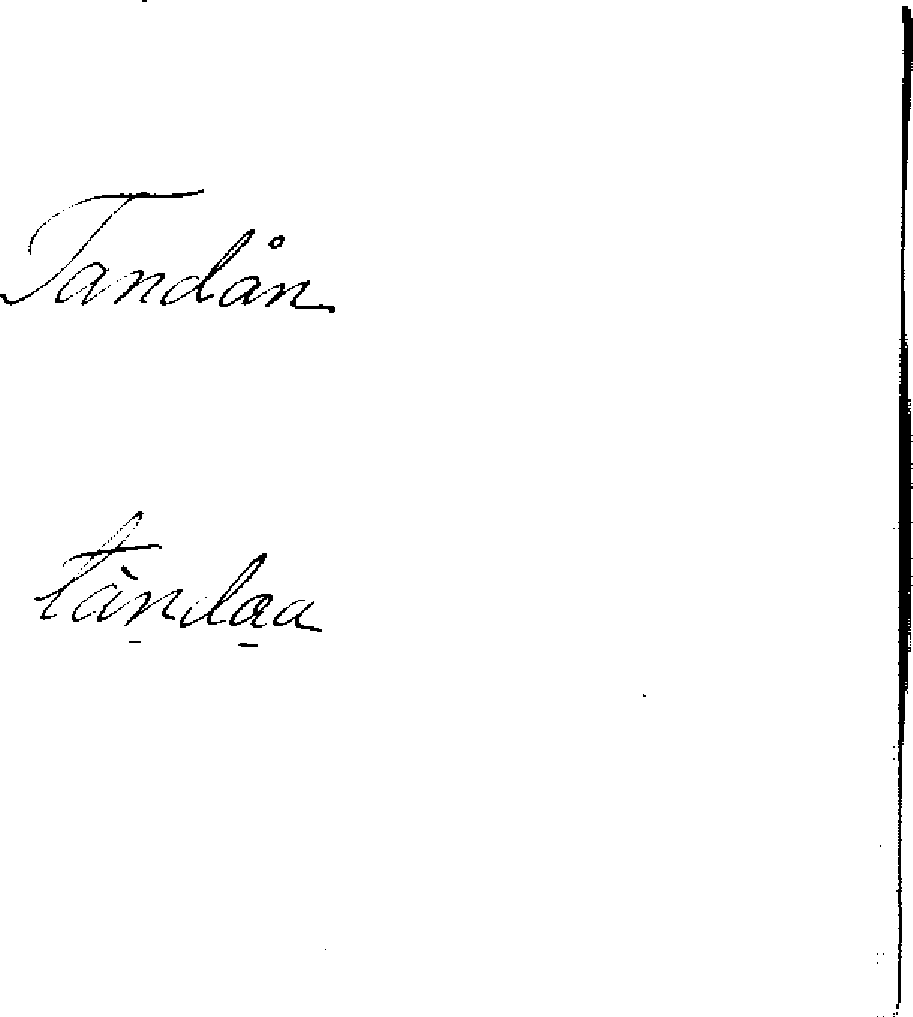 Tandån
tàn̠da̠a